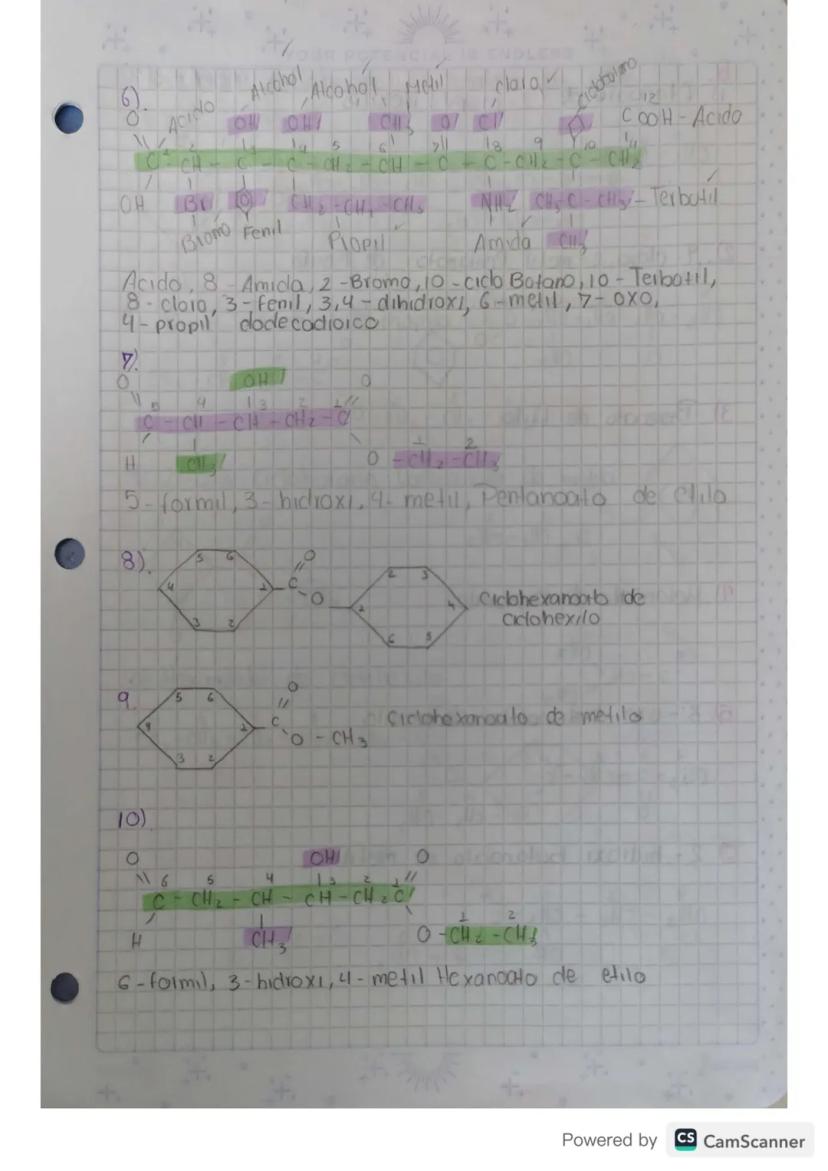 YOUR POTENTIAL IS ENDLESS
6).
Acido Alcohol Alcohol Metil cloro ciclobutano
O OH OH CH3 O Cl 12 COOH - Acido
1 2 3 4 5 6 7 8 9 10 11
C - CH - C - C - CH2 - CH - C - C - CH2 - C - CH2
OH Br CH2 - CH2 - CH3 NH2 CH3 C - CH3 - Terbutil
Bromo Fenil Propil Amida CH3
Acido, 8 - Amida, 2 - Bromo, 10 - ciclo Botano, 10 - Terbotil,
8 - cloro, 3 - fenil, 3,4 - dihidroxi, 6 - metil, 7 - oxo,
4 - propil dodecadioico
7).
O OH O
5 4 3 2 1
C - CH - CH - CH2 - C
1 2
H CH3 O - CH2 - CH3
5 - formil, 3 - hidroxi, 4 - metil, Pentanoato de etilo
8).
5 6 O 2 3
4 1 C O 1 4 Ciclohexanoato de
3 2 6 5 ciclohexilo
9.
5 6 O
4 1 C Ciclohexanoato de metilo
3 2 O - CH3
10)
O OH O
6 5 4 3 2 1
C - CH2 - CH - CH - CH2 C
1 2
H CH3 O - CH2 - CH3
6 - formil, 3 - hidroxi, 4 - metil Hexanoato de etilo
Powered by CS CamScanner